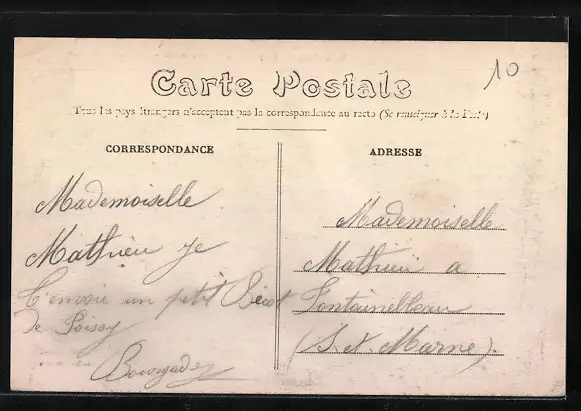 10
Carte Postale
Tous les pays étrangers n'acceptent pas la correspondance au recto (Se renseigner à la Poste)
CORRESPONDANCE
Mademoiselle
Mathieu je
t'envoie un petit Bécot
de Poissy
ADRESSE
Mademoiselle
Mathieu a
Fontainebleau
(S. et. Marne).